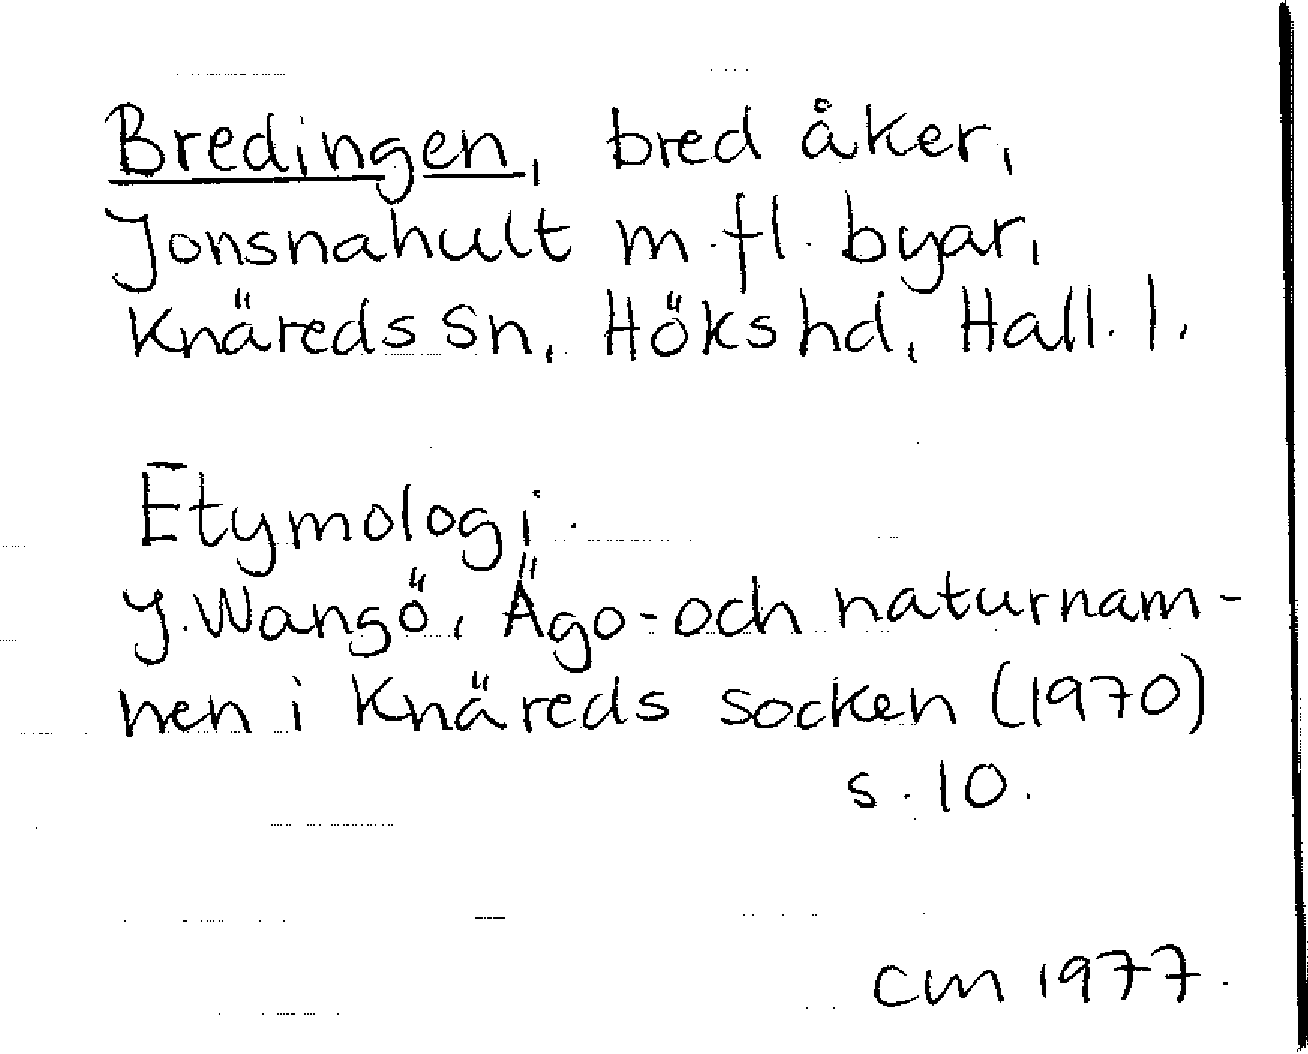 Bredingen, bred åker,
Jonsnahult m.fl. byar,
Knäreds sn, Höks hd, Hall. l.
Etymologi.
J. Wangö, Ägo- och naturnam-
nen i Knäreds socken (1970)
s. 10.
CM 1977.